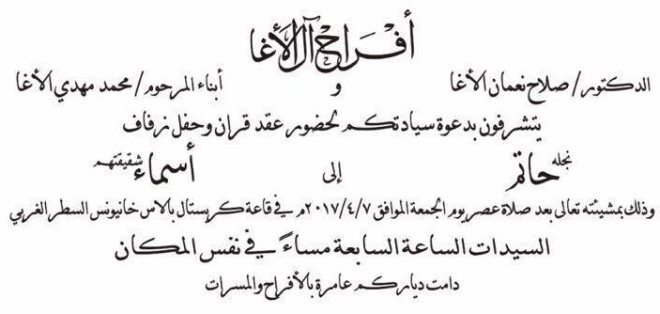 أفراح آل الأغا
الدكتور/ صلاح نعمان الأغا و أبناء المرحوم/ محمد مهدي الأغا
يتشرفون بدعوة سيادتكم لحضور عقد قران وحفل زفاف
نجله حاتم إلى شقيقتهم أسماء
وذلك بمشيئته تعالى بعد صلاة عصر يوم الجمعة الموافق ٢٠١٧/٤/٧م في قاعة كريستال بالاس خانيونس السطر الغربي
السيدات الساعة السابعة مساءً في نفس المكان
دامت دياركم عامرة بالأفراح والمسرات